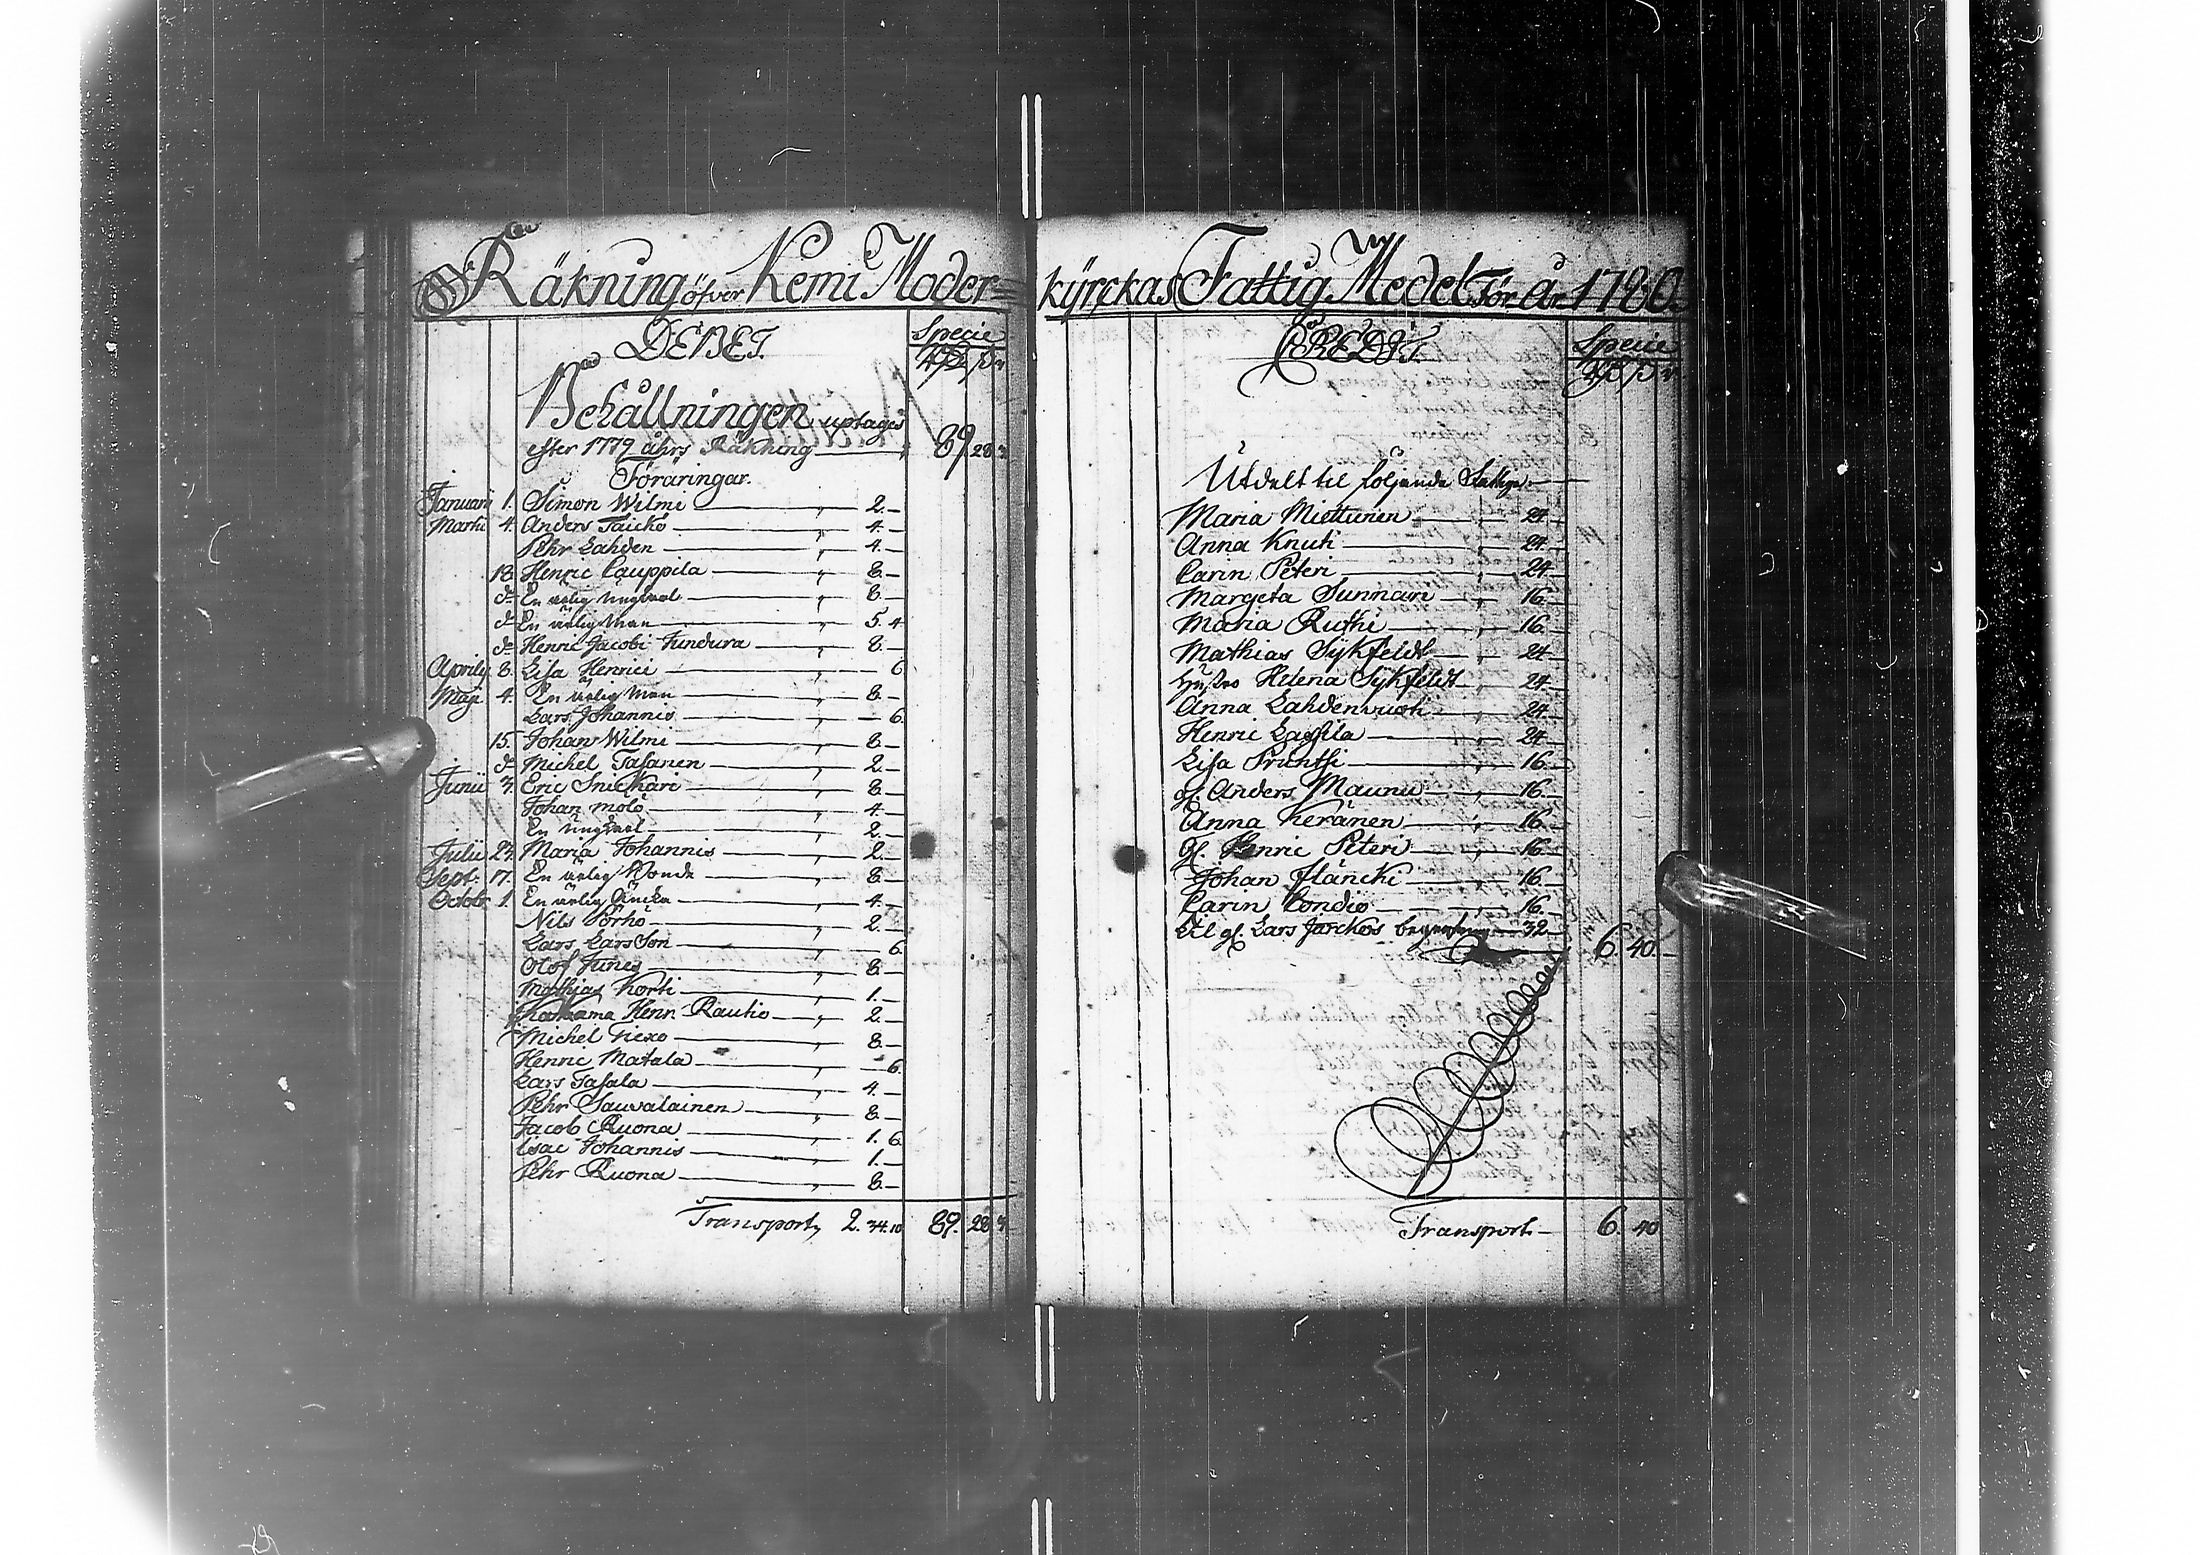 Räkning öfver Kemi Moder=
DEBET.
Specie
Behållningen uptages
efter 1779 åhrs Räkning — " 89. 28. 3
Föräringar.
Januarii 1. Simon Wilmi — " — 2. —
Martii 4. Anders Taicko — " — 4. —
Pehr Lahden — " — 4. —
18 Henric Cauppila — " — 8. —
do En ärlig ungkarl — " — 8. —
do En ärlig Man — " — 5. 4
do Henric Jacobi Fundura — " — 8. —
Aprilis 8. Lisa Henrici — " — 6
Maji 4. En ärlig Man — " — 8. —
Lars Johannis — " — 6.
15. Johan Wilmi — " — 8. —
do Michel Tasanen — " — 2. —
Junii 3. Eric Snickari — " — 8. —
Johan Molo — " — 4. —
En ungkarl — " — 2. —
Julii 23. Maria Johannis — " — 2. —
Sept. 17. En ärlig Bonde — " — 8. —
Octobr 1. En ärlig Äncka — " — 4. —
Nils Pörhö — " — 2. —
Lars LarsSon — " — 6.
Olof Junes — " — 8. —
Mathias Korti — " — 1. —
Henr. Rautio — " — 2. —
Michel — " — 8. —
Henric Matala — " — 6.
Lars Tasala — " — 4. —
Pehr Sauvalainen — " — 8. —
Jacob Ruona — " — 1. 6.
Isac Johannis — " — 1. —
Pehr Ruona — " — 8. —
Transport, 2. 34. 10 89. 28. 3
kÿrckas Fattig Medel För År 1780.
CREDIT.
Specie
Utdelt til följande Fattige. —
Maria Miettunen — " — 24. —
Anna Knuti — " — 24. —
Carin Peteri — " — 24. —
Margeta Sunnari — " — 16. —
Maria Ruthi — " — 16. —
Mathias Sÿkfeldt — " — 24. —
Hustro Helena Sÿkfeldt — " — 24. —
Anna Lahdenvuoti — " — 24. —
Henric Lassila — " — 24. —
Lisa Pruntsi — " — 16. —
gl. Anders Maunu — " — 16. —
Anna Keränen — " — 16. —
gl. Henric Peteri — " — 16. —
Johan Fläncki — " — 16. —
Carin Condio — " — 16. —
til gl. Lars Jarckos begrafning — 32. — 6. 40. —
Transport — 6. 40